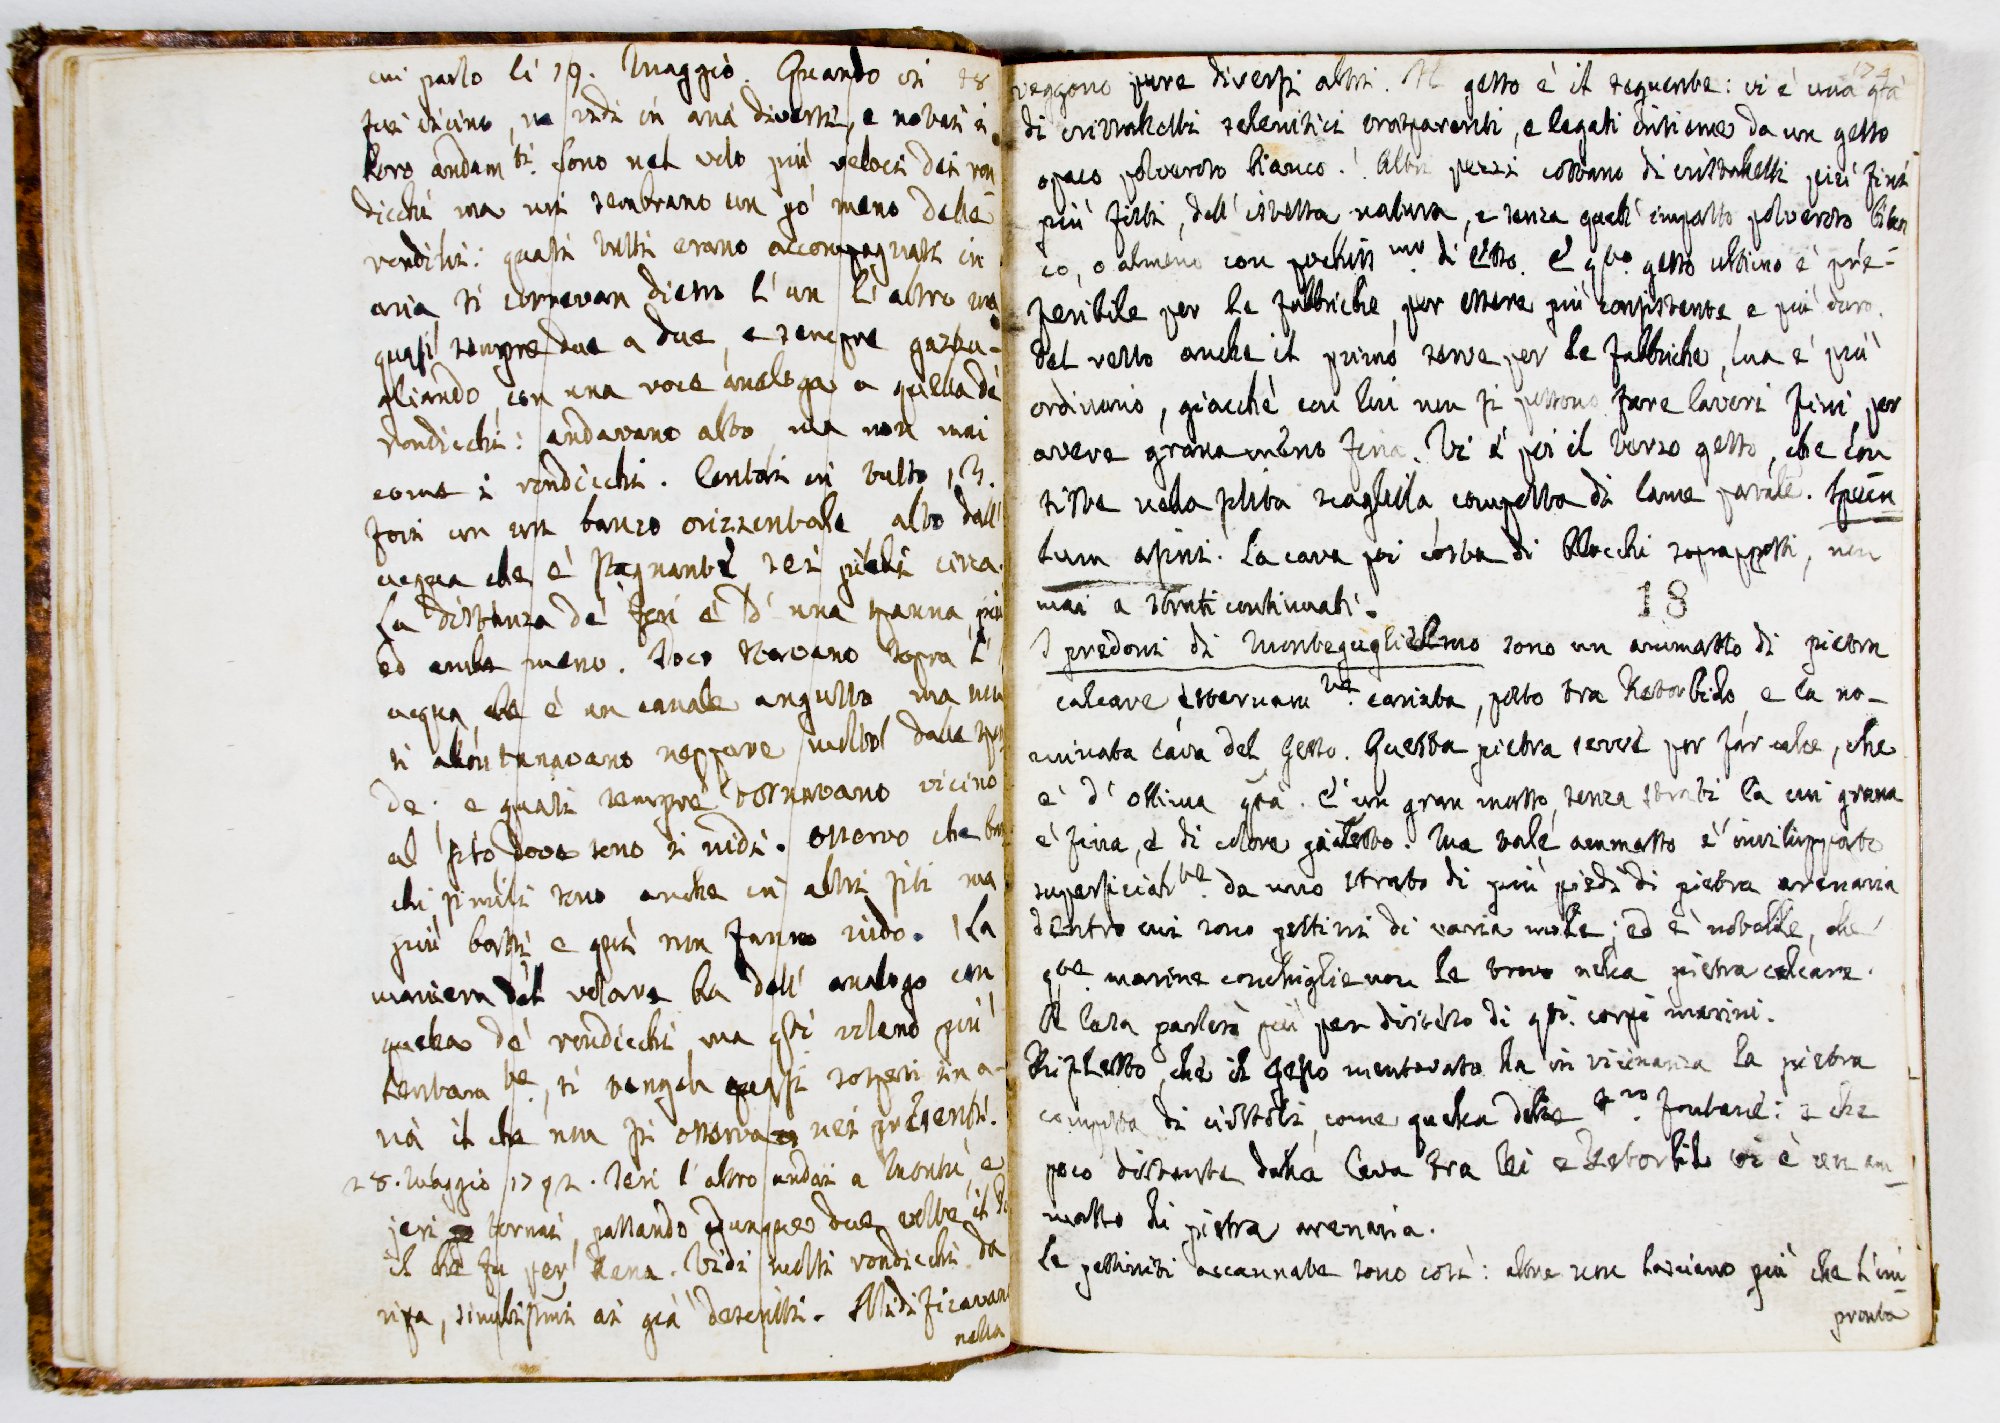 cui parlo li 19. Maggio. Quando vi 18
fui vicino, ne vidi in aria diversi, e notai i
loro andam.ti. Sono nel volo più veloci dei ron
dicchi ma mi sembrano un po' meno delle
rondini: quasi tutti erano accompagnati in
aria si correvan dietro l'un l'altro ma
quasi sempre due a due, e sempre garbu-
gliando con una voce analoga a quella de
rondicchi: andavano alto ma non mai
come i rondicchi. Contai in tutto 13.
fori un banco orizzontale alto dall'
acqua che è stagnante sei piedi circa.
La distanza de' fori è d' una spanna, più
ed anche meno. Poco stavano sopra l'
acqua che è un canale angusto ma non
si allontanavano neppure molto dalle spon
de; e quasi sempre tornavano vicino
al sito dove sono i nidi. Osservo che bu
chi simili sono anche in altri siti ma
più bassi e quivi non fanno nido. La
maniera del volare ha dell' analogo con
quella de' rondicchi, ma questi volano più
, si tengon quasi sospesi in a-
ria il che non si osserva nei presenti.
28. Maggio 1792. Ieri l'altro andai a Montù, e
jeri tornai, passando dunque due volte il Po
il che fu per Rena. Vidi molti rondicchi da
ripa, ai già descritti. Nidificavano
nella
174
veggono pure diversi altri. Il gesso è il seguente: vi è una qtà
di cristalletti selenitici trasparenti, e legati insieme da un gesso
opaco polveroso bianco. Altri pezzi constano di cristalletti più fini
più fitti, dell' istessa natura, e senza quell' impasto polveroso bian
co, o almeno con pochiss.mo di esso. E q.to gesso ultimo è pre-
feribile per le fabbriche, per essere più consistente e più duro.
Del resto anche il primo serve per le fabbriche, ma è più
ordinario, giacchè con lui non si possono fare lavori fini per
avere grana meno fina. Vi è poi il terzo gesso, che con
siste nella solita scagliola, composta di lame parale. Specu
lum asini. La cava poi consta di blocchi soprapposti, non
mai a strati continuati.
18
I predoni di Monteguglielmo sono un ammasso di pietra
calcare esternam.te cariata, posto tra Retorbido, e la no-
minata cava del Gesso. Questa pietra serve per far calce, che
è d' ottima qtà. È un gran masso, senza strati la cui grana
è fina, e di colore gialletto. Ma tale ammasso è inviluppato
superficialm.te da uno strato di più piedi di pietra arenaria
dentro cui sono pettini di varia mole; ed è notabile, che
q.te marine conchiglie non le trovo nella pietra calcare.
Si parlerà più per disteso di q.ti corpi marini.
Rifletto, che il gesso mentovato ha in vicinanza la pietra
composta di ciottoli, come quella delle fontane: e che
poco distante dalla Cava tra lei e Retorbido vi è un am
masso di pietra arenaria.
Le pettiniti accennate sono così: altre non lasciano più che l'im
pronta